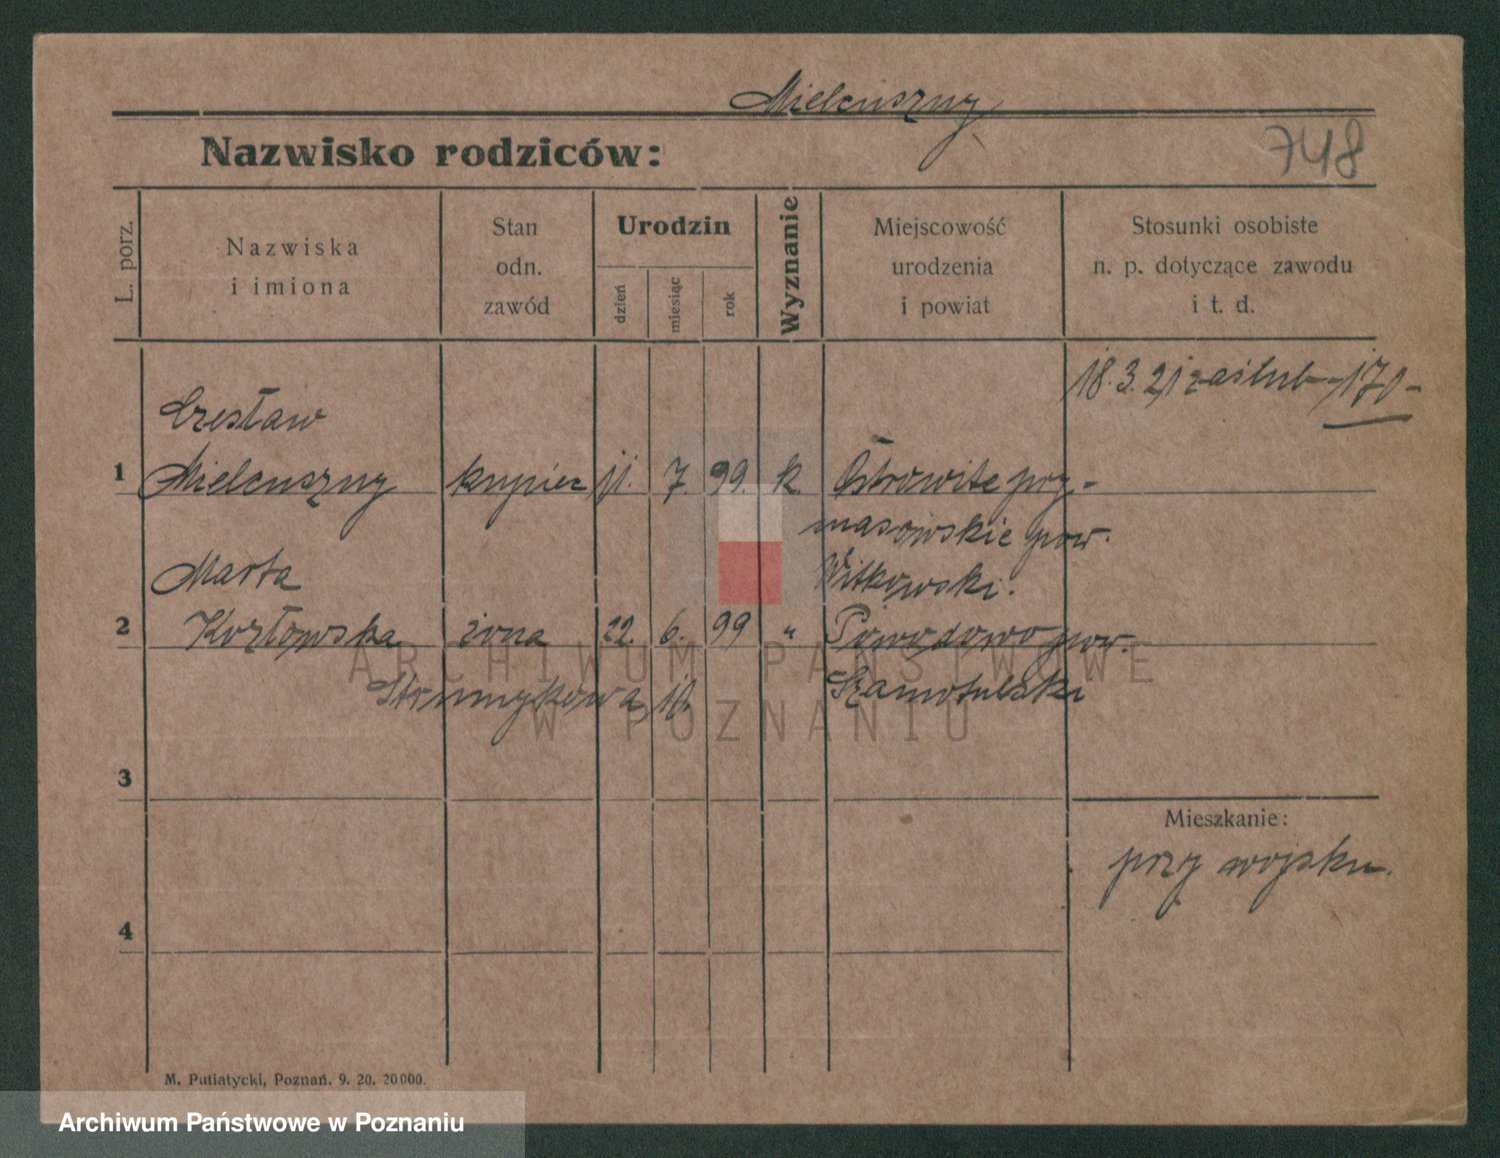 Mielcuszny
Nazwisko rodziców:
748
L. porz.
Nazwiska
i imiona
Stan
odn.
zawód
Urodzin
dzień
miesiąc
rok
Wyznanie
Miejscowość
urodzenia
i powiat
Stosunki osobiste
n. p. dotyczące zawodu
i t. d.
18.3.21 zaślub - 170 -
Czesław
1 Mielcuszny kupiec 11. 7. 99. k. Ostrowite pry-
masowskie pow.
Witkowski.
Marta
2 Kozłowska żona 22. 6. 99 " pow.
Szamotulski
3
4
Mieszkanie:
przy wojsku.
ARCHIWUM PAŃSTWOWE
W POZNANIU
M. Putiatycki, Poznań. 9. 20. 20000.
Archiwum Państwowe w Poznaniu